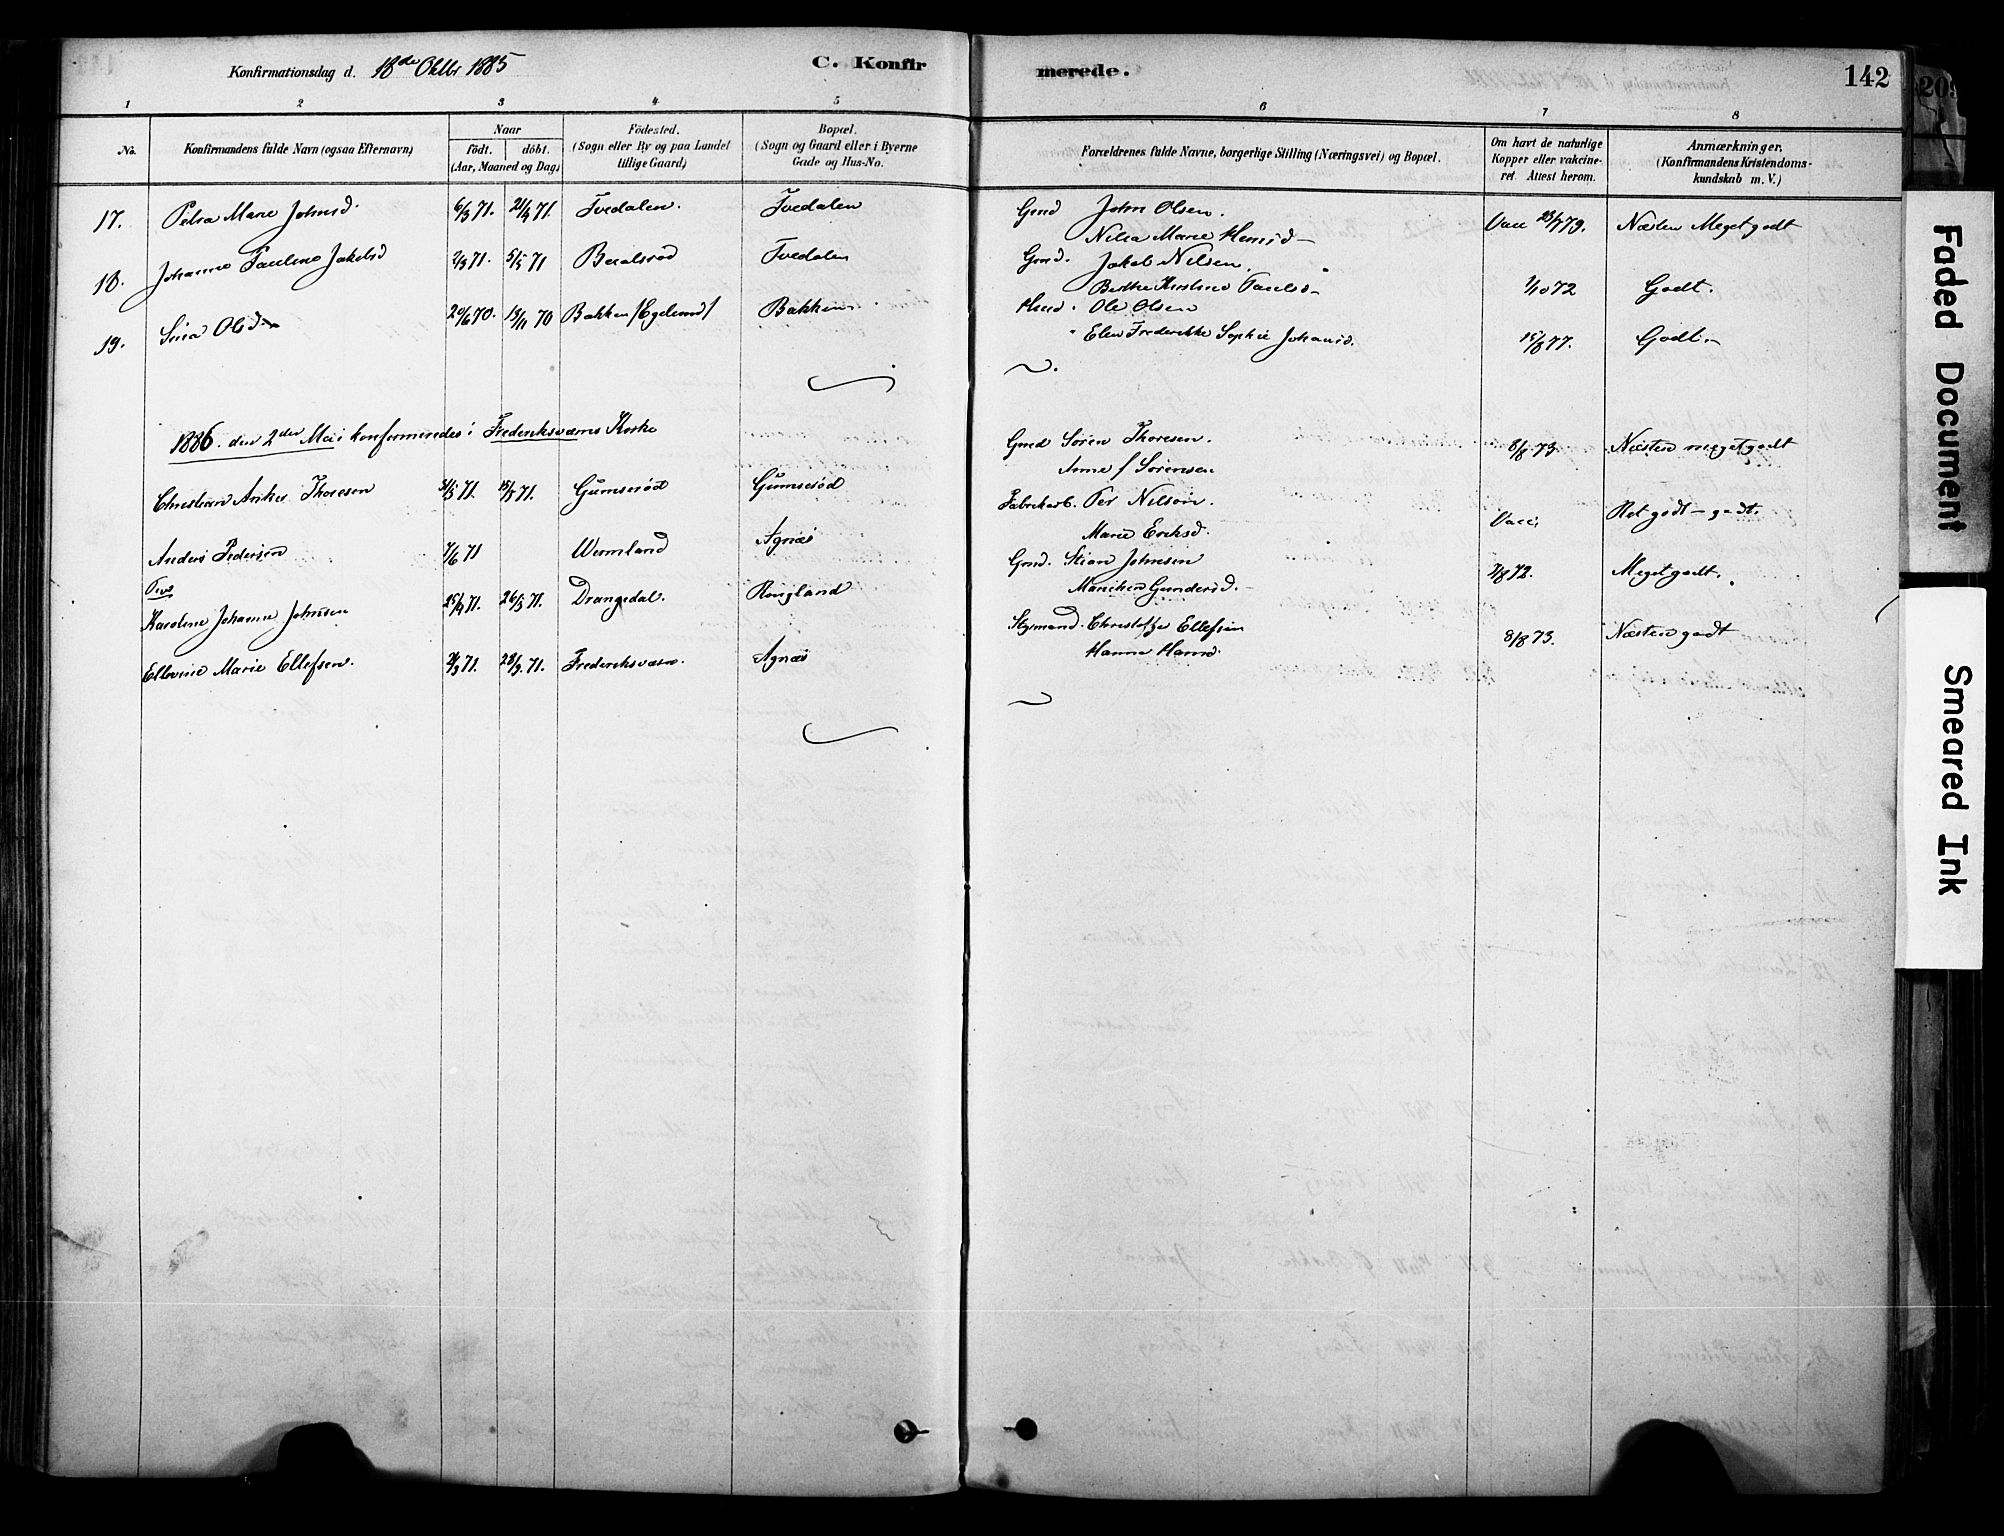 Konfirmationsdag d. 18de Oktbr 1885 C. Konfirmerede. 142
1 2 3 4 5 6 7 8
No. Konfirmandens fulde Navn (ogsaa Efternavn) Naar født. døbt. (Aar, Maaned og Dag) Fødested. (Sogn eller By og paa Landet tillige Gaard) Bopæl. (Sogn og Gaard eller i Byerne Gade og Hus-No. Forældrenes fulde Navne, borgerlige Stilling (Næringsvei) og Bopæl. Om havt de naturlige Kopper eller vakcineret. Attest herom. Anmærkninger. (Konfirmandens Kristendomskundskab m. V.)
17. Petra Marie Johnsd. 6/3 71. 21/4 71. Tvedalen. Tvedalen Gmd John Olsen. Vacc 23/7 79. Næsten Meget godt
Nilia Marie Hansd
18. Johanne Pauline Jakobsd 2/3 71. 5/5 71 Tvedalen Gmd. Jakob Nilsen
Berthe Kirstine Paulsd 1/10 72 Godt.
19. Sina Olsd 20/6 70. 13/11 70 Bakken /Egelund/ Bakken Husd. Ole Olsen
Elen Frederikke Sophie Johansd. 15/8 77. Godt.
1886. den 2den Mai konfirmeredes i Frederiksværns Kirke
Christian Anker Thoresen 31/3 71. 15/5 71. Gumserød Gumserød Gmd Søren Thoresen. 8/8 73. Næsten meget godt
Anne f Sørensen
Anders Pedersen 7/6 71 Wermland Agnæs Fabrikarb. Per Nilson. Vacc. Ret godt - godt.
Marie Eriksd.
Karoline Johanne Johnsen 25/4 71. 26/5 71. Drangedal. Ringland Gmd. Stian Johnsen 7/8 72. Meget godt.
Mariken Gundersd.
Ellevine Marie Ellefsen. 2/3 71. 28/9. 71. Frederiksværn. Agnæs Styrmand. Christoffer Ellefsen 8/8 73. Næsten godt
Hanna Hansd.
Faded Document
Smeared Ink